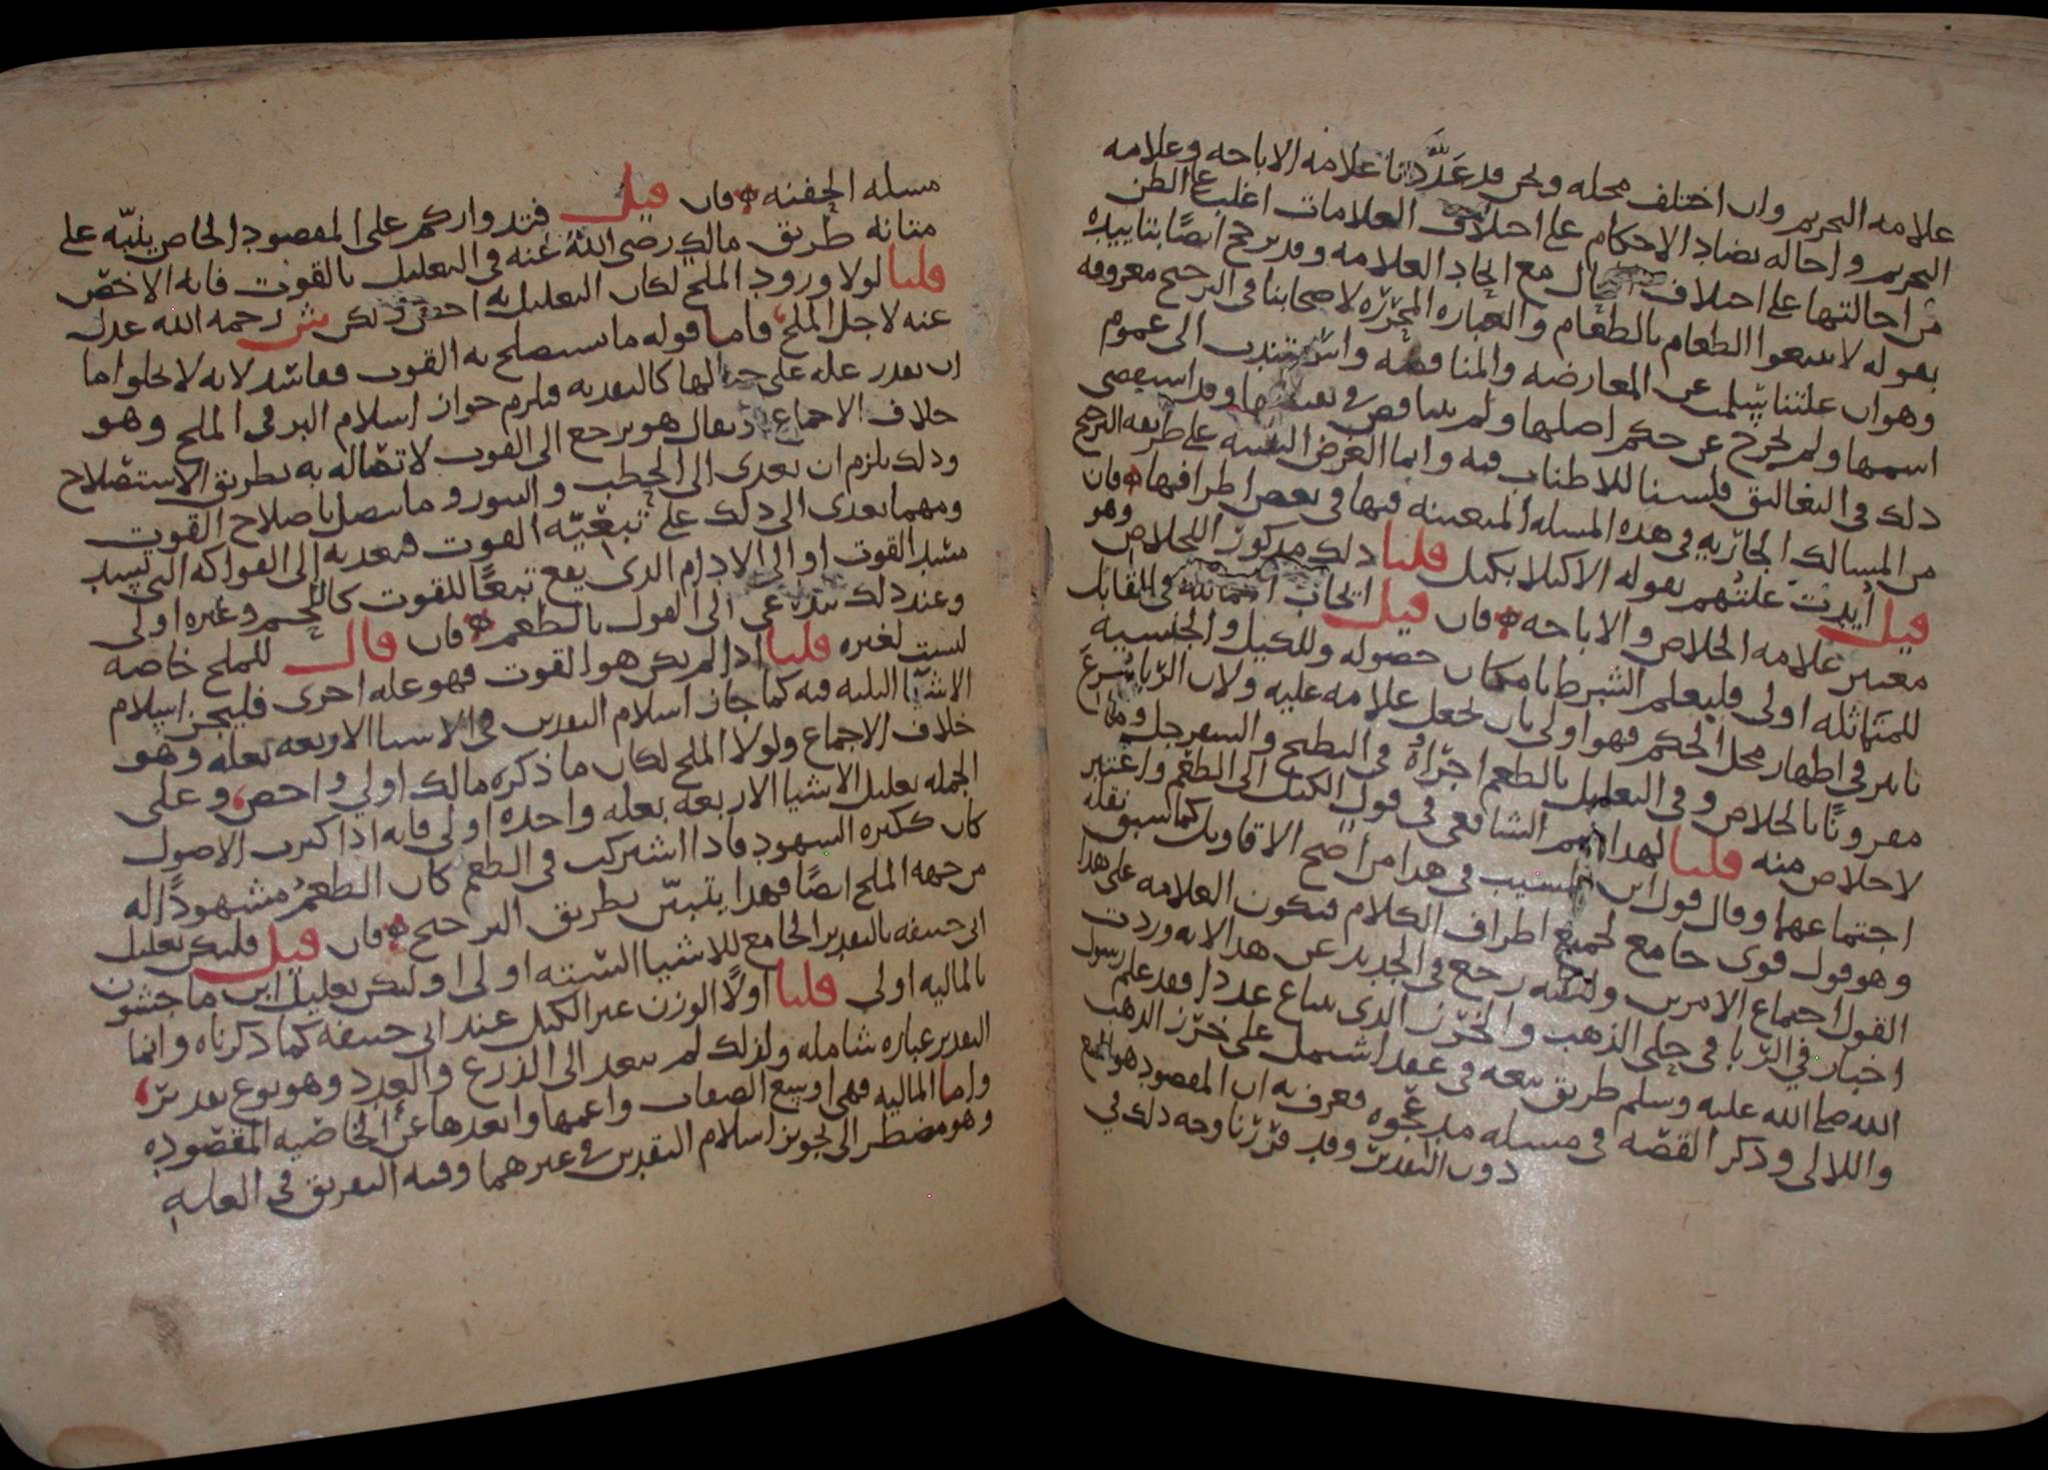 علامه التحريم وان اختلف محله ونحن قد عَدَّدنا علامه الاباحه وعلامه
التحريم واحاله تضاد الاحكام على اختلاف العلامات اغلب على الظن
من احالتها على اختلاف الحال مع اتحاد العلامه وقد يرجح ايضًا بتاييده
بقوله لا تبيعوا الطعام بالطعام والعباره المحررّه لاصحابنا في الترجيح معروفه
وهو ان علتنا سلمت عن المعارضه والمناقضه واستندت الى عموم
اسمها ولم تخرج عن حكم اصلها ولم تناقض في وقد استقصى
ذلك في التعاليق فلسنا للاطناب فيه وانما الغرض التنبيه على طريقه الترجيح
من المسالك الجاريه في هذه المسله المتعينه فيها في بعض اطرافها فان
قيل اُيدت علتهم بقوله الا كيلا بكيل قلنا ذلك مذكور للخلاص وهو
معتبر علامه الخلاص والاباحه فان قيل ايجاب المماثله في المقابل
للمتماثله اولى فليعلم الشرط بامكان حصوله وللكيل والجنسيه
تاثير في اظهار محل الحكم فهو اولى بان يجعل علامه عليه ولان الربا شرع
مقرونًا بالخلاص وفي التعليل بالطعم اجراؤه في البطيخ والسفرجل وما
لا خلاص منه قلنا لهذا الشافعي في قول الكيل الى الطعم واعتبر
اجتماعهما وقال قول ابن المسيب في هذا من اصح الاقاويل كما سبق نقله
وهو قول قوي جامع لجميع اطراف الكلام فتكون العلامه على هذا
القول اجتماع الامرين ولكنه رجع في الجديد عن هذا لانه وردت
اخبار في الربا في حلى الذهب والخرز الذي يباع عددا فقد علم رسول
الله صلى الله عليه وسلم طريق بيعه في عقد اشتمل على خرز الذهب
واللالي وذكر القصّه في مسله مد عجوه فعرف به ان المقصود هو الجمع
دون التقدير وقد قررنا وجه ذلك في
مسله الحفنه فان قيل قتدواركم على المقصود الخاص ينبّه على
متانه طريق مالك رضي الله عنه في التعليل بالقوت فانه الاخصّ
قلنا لولا ورود الملح لكان التعليل به احص ولكن ش رحمه الله عدل
عنه لاجل الملح فاما قوله ما يستصلح به القوت ففاسد لانه لا يخلوا اما
ان يقدر عله على حيالها كالنقديه فيلزم جواز اسلام البر في الملح وهو
خلاف الاجماع او يقال هو يرجع الى القوت لاتصاله به بطريق الاستصلاح
وذلك يلزم ان يعدى الى الحطب والتنور وما يتصل باصلاح القوت
ومهما تعدى الى ذلك على تبعيّه القوت فتعديه الى الفواكه التي تسد
مسد القوت او الى الادام الذي يقع تبعًا للقوت كاللحم وغيره اولى
وعند ذلك يتداعى الى القول بالطعم فان قال للملح خاصه
ليست لغيره قلنا اذا لم يكن هو القوت فهو عله اخرى فليجز اسلام
الاشيا الثلثه فيه كما جاز اسلام النقدين في الاشيا الاربعه بعله وهو
خلاف الاجماع ولولا الملح لكان ما ذكره مالك اولى واخص وعلى
الجمله تعليل الاشيا الاربعه بعله واحده اولى فانه اذا كثرت الاصول
كان ككثره الشهود فاذا اشتركت في الطعم كان الطعمُ مشهودًا له
من جهه الملح ايضًا فهذا يتبيّن بطريق الترجيح فان قيل فليكن تعليل
ابي حنيفه بالتقدير الجامع للاشيا الستّه اولى او ليكن تعليل ابن ماجشون
بالماليه اولى قلنا اولًا الوزن غير الكيل عند ابي حنيفه كما ذكرناه وانما
التقدير عباره شامله ولذلك لم يتعد الى الذرع والعدد وهو نوع تقدير
واما الماليه فهي اوسع الصفات واعمها وابعدها عن الخاصّيه المقصوده
وهو مضطر الى تجويز اسلام النقدين في غيرهما وفيه التفريق في العله